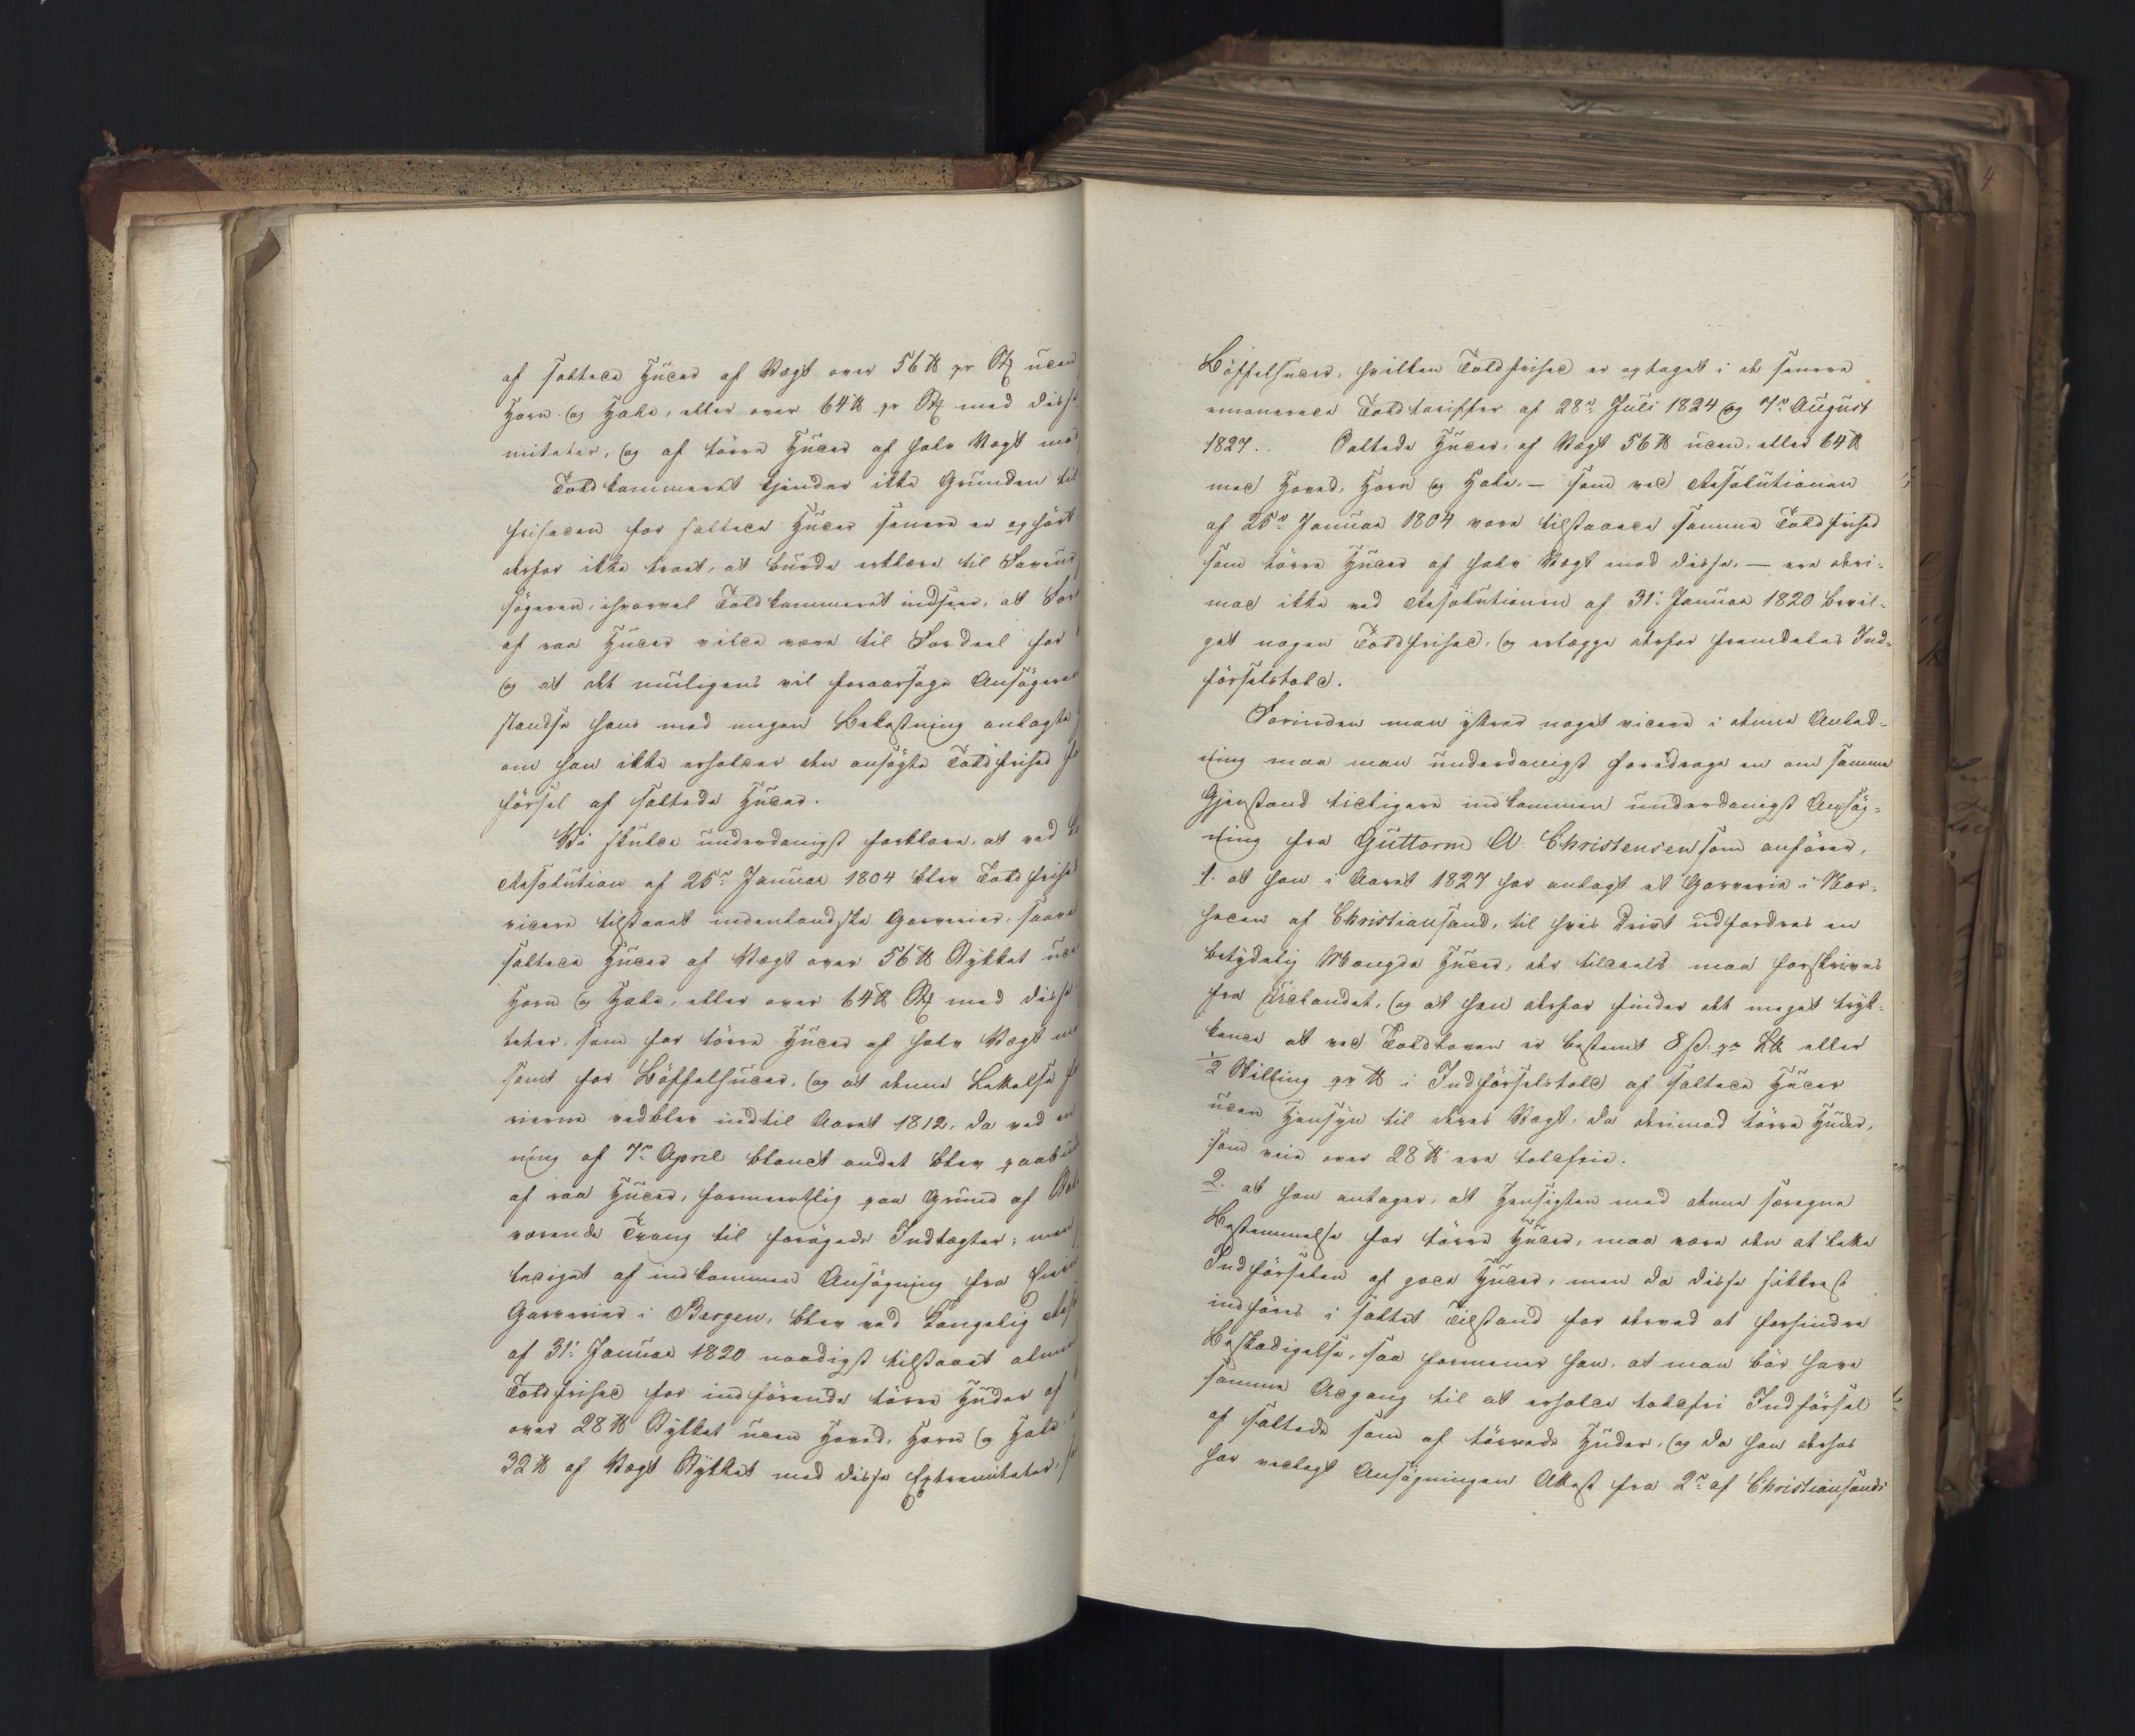 af saltede Huder af Vægt over 56 ℔ pr St uden
Horn og Hale, eller over 64 ℔ pr St med disse
mitæter, og af tørre Huder af halv Vægt mod
Toldkammeret kjender ikke Grunden til
friheden for saltede Huder senere er ophørt
derfor ikke troet, at burde erklære til
søgeren, ihvorvel Toldkammeret indseer, at
af raa Huder vilde være til Fordeel for
og at det muligens vil foraarsage Ansøgeren
standse hans med megen Bekostning anlagte
om han ikke erholder den ansøgte Toldfrihed
førsel af saltede Huder.
Vi skulde underdanigst forklare, at ved
Resolution af 25de Januar 1804 blev Toldfrihed
videre tilstaaet indenlandske Garverier, saavel
saltede Huder af Vægt over 56 ℔ Stykket uden
Horn og Hale, eller over 64 ℔ St med disse
teter, som for tørre Huder af halv Vægt
samt for Bøffelhuder, og at denne Lettelse
rierne vedblev indtil Aaret 1812, da ved en
ning af 7de April blandt andet blev paabudt
af raa Huder, formeentlig paa Grund af
værende Trang til forøgede Indtægter; men
lediget af indkommen Ansøgning fra
Garverier i Bergen, blev ved Kongelig
af 31te Januar 1820 naadigst tilstaaet
Toldfrihed for indførende tørre Huder af
over 28 ℔ Stykket uden Hoved, Horn og Hale
32 ℔ af Vægt Stykket med disse Extremiteter,
Bøffelhuder, hvilken Toldfrihed er optaget i de senere
emanerede Toldtariffer af 28de Juli 1824 og 7de August
1827. Saltede Huder, af Vægt 56 ℔ uden, eller 64 ℔
med Hoved, Horn og Hale, – som ved Resolutionen
af 25de Januar 1804 vare tilstaaede samme Toldfrihed
som tørre Huder af halv Vægt mod disse, – ere deri-
mod ikke ved Resolutionen af 31te Januar 1820 bevil-
get nogen Toldfrihed, og erlægge derfor fremdeles Ind-
førselstold.
Forinden man yttrer noget videre i denne Anled-
ning maa man underdanigst foredrage en om samme
Gjenstand tidligere indkommen underdanigst Ansøg-
ning fra Guttorm A. Christensen som anfører,
1. at han i Aaret 1827 har anlagt et Garverie i Nær-
heden af Christiansand, til hvis Drivt udfordres en
betydelig Mængde Huder, der tildeels maa forskrives
fra Udlandet, og at han derfor finder det meget tryk-
kende at ved Toldloven er bestemt 8 ß. pr L℔ eller
1/2 Skilling pr ℔ i Indførselstold af saltede Huder
uden Hensyn til deres Vægt, da derimod tørre Huder,
som veie over 28 ℔ ere toldfrie.
2. at han antager, at Hensigten med denne særegne
Bestemmelse for tørre Huder, maa være den at lette
Indførselen af gode Huder, men da disse sikkrest
indføres i saltet Tilstand for derved at forhindre
Beskadigelse, saa formener han, at man bør have
samme Adgang til at erholde toldfri Indførsel
af saltede som af tørrede Huder, og da han derhos
har vedlagt Ansøgningen Attest fra 2de af Christiansands